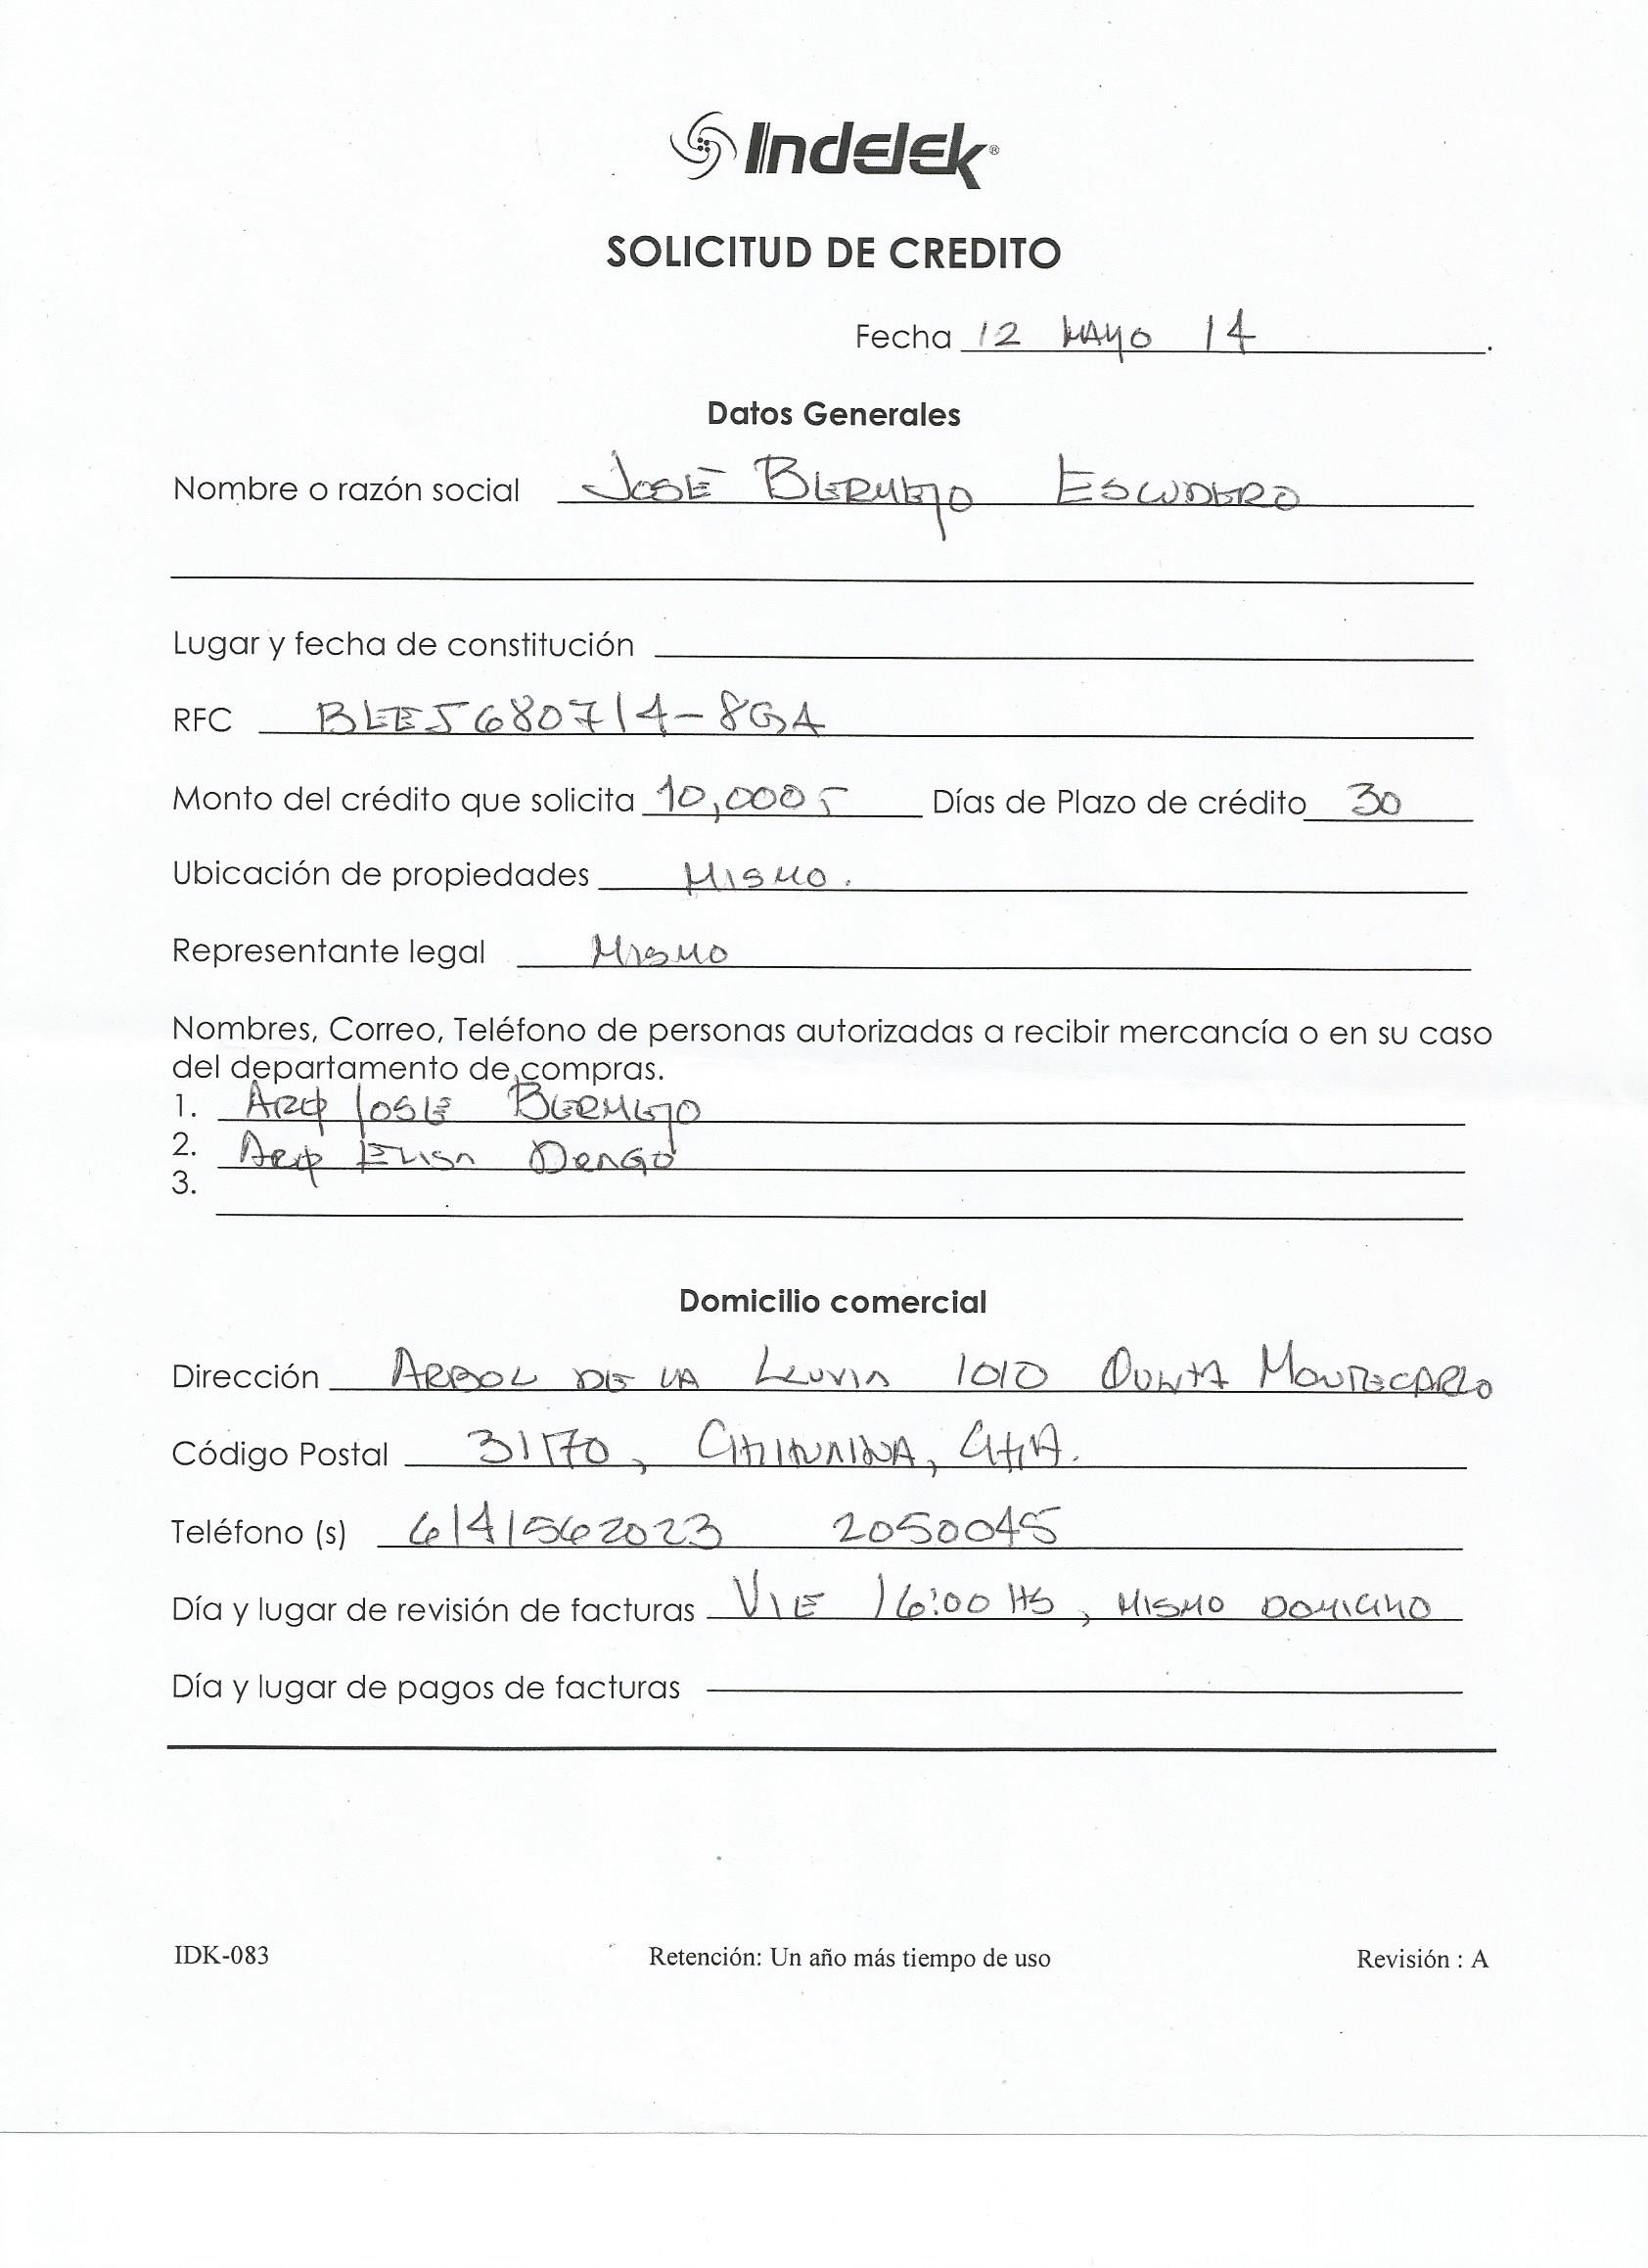 Indelek®
SOLICITUD DE CREDITO
Fecha 12 MAYO 14.
Datos Generales
Nombre o razón social JOSÉ BERMEJO ESCUDERO
Lugar y fecha de constitución
RFC BEEJ680714-8GA
Monto del crédito que solicita 10,000 Días de Plazo de crédito 30
Ubicación de propiedades MISMO.
Representante legal MISMO
Nombres, Correo, Teléfono de personas autorizadas a recibir mercancía o en su caso
del departamento de compras.
1. ARQ JOSE BERMEJO
2. ARQ ELISA
3.
Domicilio comercial
Dirección ARBOL DE LA LLUVIA 1010 QUINTA MONTECARLO
Código Postal 31170, CHIHUAHUA, CHA.
Teléfono (s) 6141562023 2050045
Día y lugar de revisión de facturas VIE 16:00 HS, MISMO DOMICILIO
Día y lugar de pagos de facturas
IDK-083 Retención: Un año más tiempo de uso Revisión : A